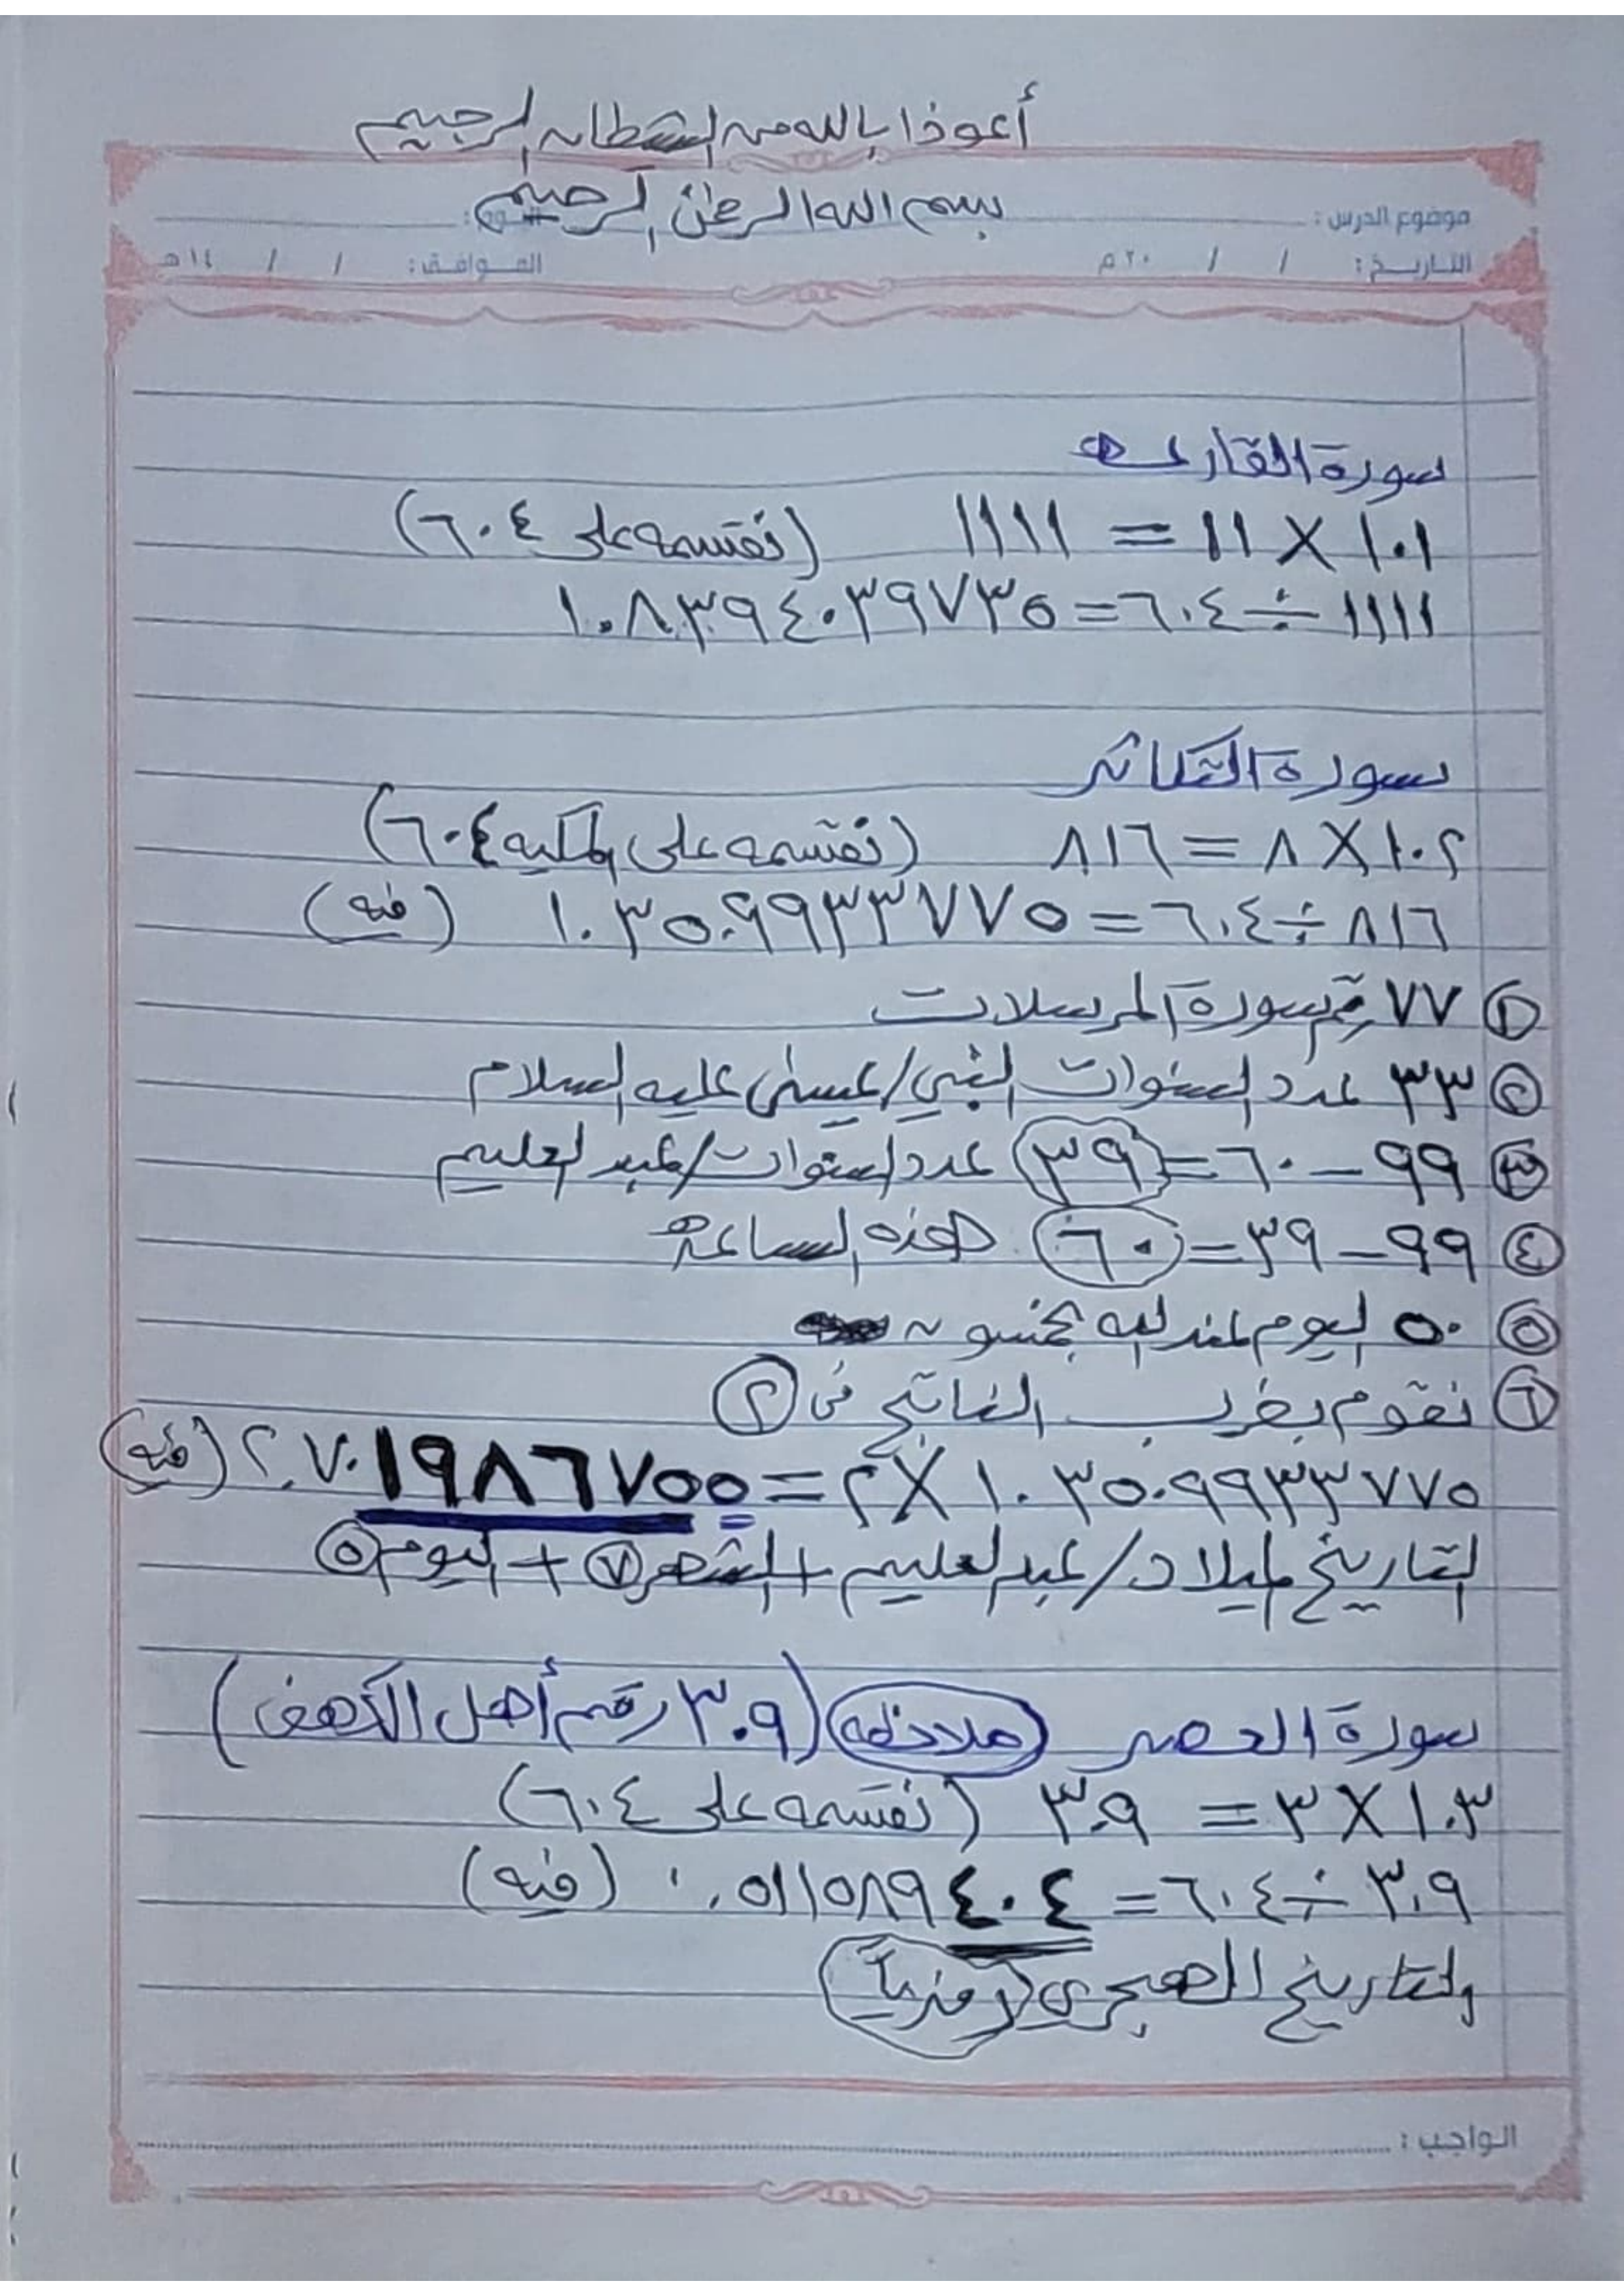 أعوذا بالله من الشطان الرجييم
بسم الله الرحمن الرحيم
موضوع الدرس : اليوم :
التاريخ : / / ٢٠م الموافق : / / ١٤هـ
سورة القارعه
١٠١ × ١١ = ١١١١ (نقسمه على ٦٠٤)
١١١١ ÷ ٦٠٤ = ١.٨٣٩٤٠٣٩٧٣٥
سورة التكاثر
١٠٢ × ٨ = ٨١٦ (نقسمه على المكيه ٦٠٤)
٨١٦ ÷ ٦٠٤ = ١.٣٥٠٩٩٣٣٧٧٥ (فيه)
١ ٧٧ رقم سورة المرسلات
٢ ٣٣ عدد السنوات النبي/عيسى عليه السلام
٣ ٩٩ - ٦٠ = ٣٩ عدد السنوات/عبد العليم
٤ ٩٩ - ٣٩ = ٦٠ هذه الساعة
٥ ٥٠ اليوم عند الله بخمسون
٦ نقوم بضرب الناتج في ٢
١.٣٥٠٩٩٣٣٧٧٥ × ٢ = ٢.٧٠١٩٨٦٧٥٥ (فيه)
التاريخ ميلاد/عبد العليم + الشهر ٧ + اليوم ٥
سورة العصر ملاحظه (٣٠٩ رقم أهل الكهف)
١٠٣ × ٣ = ٣٠٩ (نقسمه على ٦٠٤)
٣٠٩ ÷ ٦٠٤ = ٠.٥١١٥٨٩٤٠٤ (فيه)
والتاريخ الهجري رمزياً
الواجب :